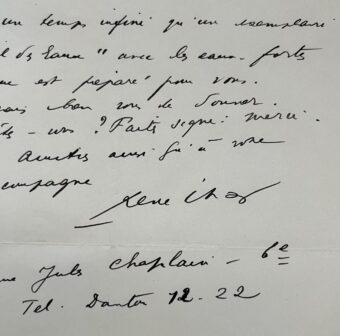 un temps infini qu'un exemplaire
des Eaux" avec les eaux-fortes
est préparé pour vous.
bon de donner
? Faites signe : merci.
Amitiés ainsi qu'à votre
compagne
René Char
Jules Chaplain - 6e
Tel. Danton 12-22